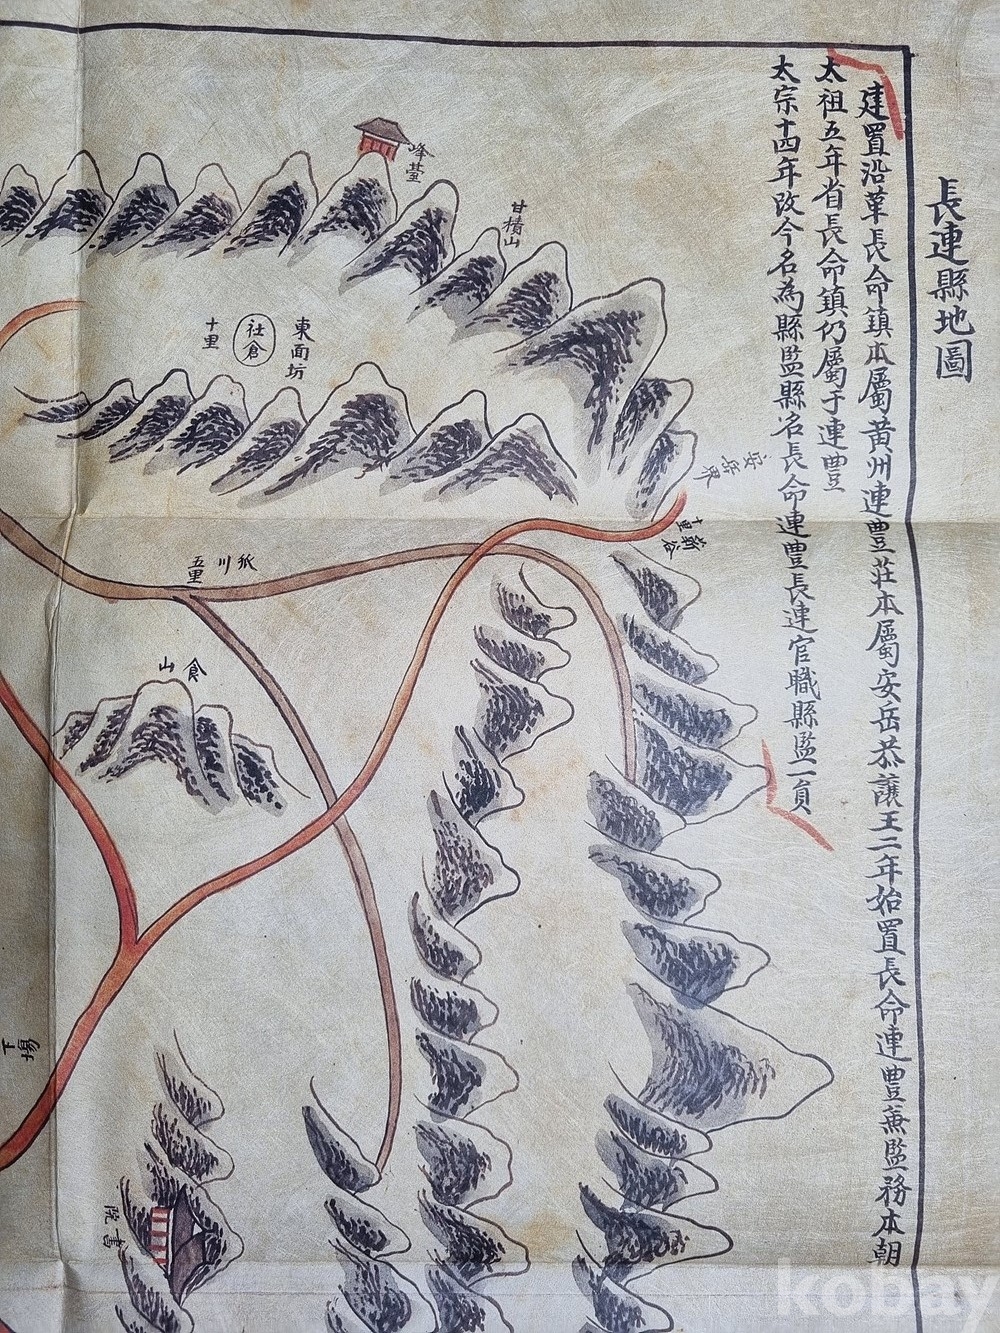 長連縣地圖
建置沿革長命鎮本屬黃州連豊莊本屬安岳恭讓王二年始置長命連豊兼監務本朝
太祖五年省長命鎮仍屬于連豊
太宗十四年改今名為縣監縣名長命連豊長連官職縣監一員
烽臺
甘積山
東面坊
社倉
十里
安岳界
新谷
十里
川
五里
食山
場下
書院
kobay